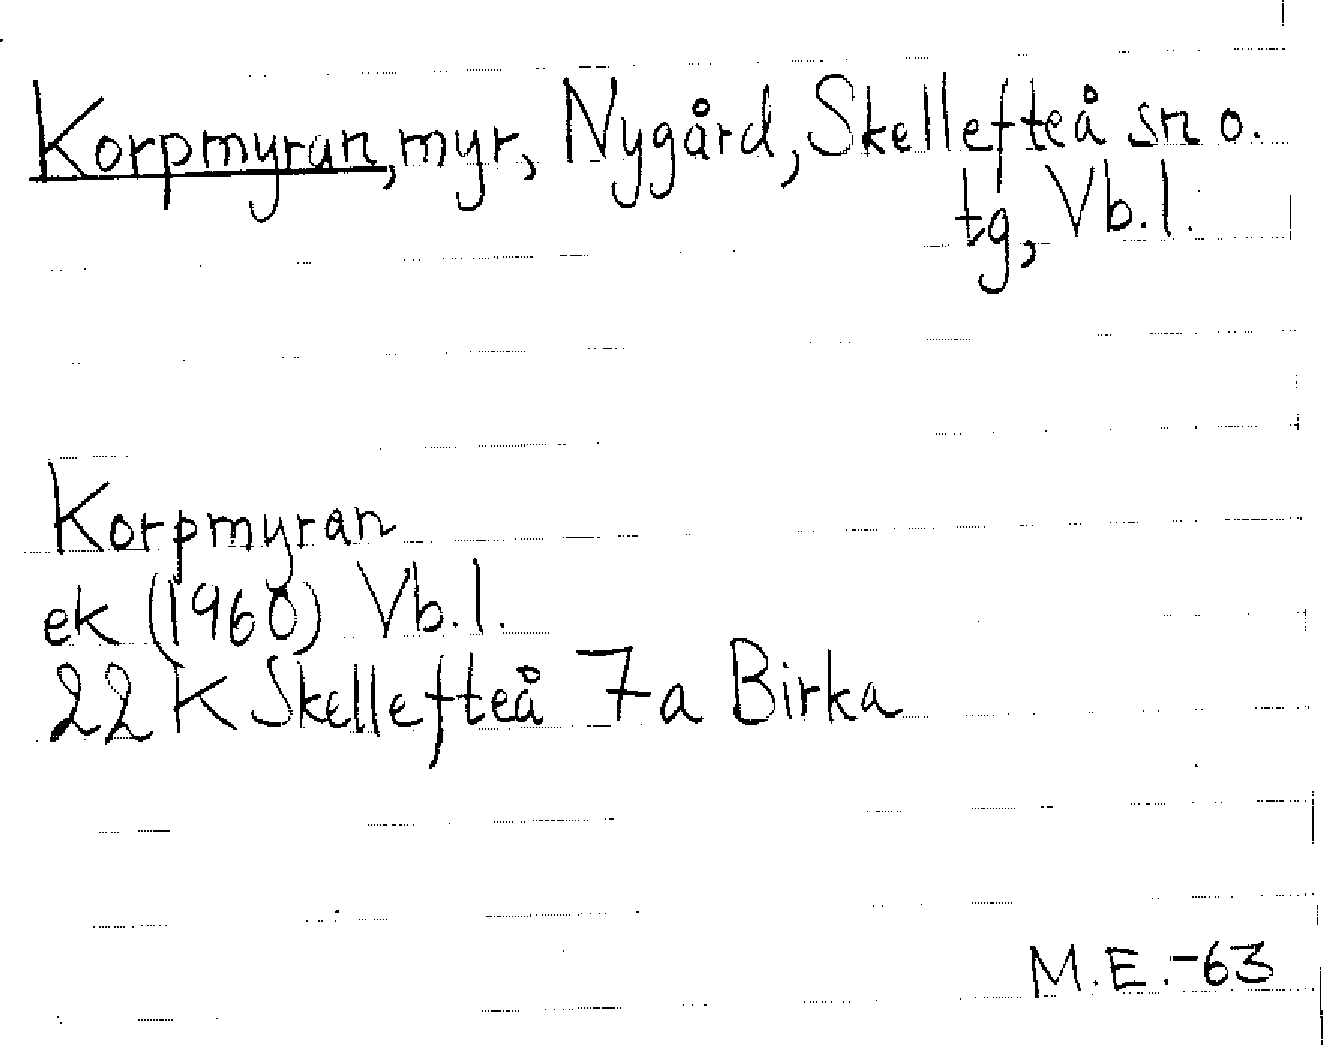 Korpmyran, myr, Nygård, Skellefteå sn o.
tg, Vb.l.
Korpmyran
ek (1960) Vb.l.
22 K Skellefteå 7a Birka
M.E.-63